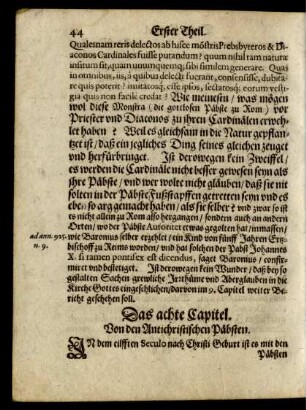 44 Erster Theil.
Qualesnam reris delectos ab husce mõstris Prebsbyteros & Di-
aconos Cardinales fuisse putandum? quum nihil tam naturæ
insitum sit, quam unumquemq; sibi similem generare. Quas
in omnibus, iis, á quibus delecti fuerant, consensisse, dubita-
re quis poterit? imitatosq; esse ipsos, sectatosq; eorum vesti-
gia quis non facilè credat? Wie meinestu / was mögen
wol diese Monstra (die gottlosen Päbste zu Rom) vor
Priester und Diaconos zu ihren Cardinälen erweh-
let haben? Weil es gleichsam in die Natur gepflan-
tzet ist / daß ein jegliches Ding seines gleichen zeuget
und herfürbringet. Ist derowegen kein Zweiffel /
es werden die Cardinäle nicht besser gewesen seyn als
ihre Päbste / und wer wolte nicht gläuben / daß sie nit
solten in der Päbste Fußstapffen getretten seyn und es
ebenso arg gemacht haben / als sie selber? und zwar so ist
es nicht allein zu Rom also hergangen / sondern auch an andern
Orten / wo der Päbste Autoritet etwas gegolten hat / inmassen /
ad ann. 925.
n. 9.
wie Baronius selber erzehlet / ein Kind von fünff Jahren Ertz-
bischoff zu Reims worden / und hat solchen der Pabst Johannes
X. si tamen pontifex est dicendus, saget Baronius / confir-
miret und bestetiget. Ist derowegen kein Wunder / daß bey so
gestalten Sachen grewliche Irrthüme und Aberglauben in die
Kirche Gottes eingeschlichen / darvon im 9. Capitel weiter Be-
richt geschehen soll.
Das achte Capitel.
Von den Antichristischen Päbsten.
IN dem eilfften Seculo nach Christi Geburt ist es mit den
Päbsten